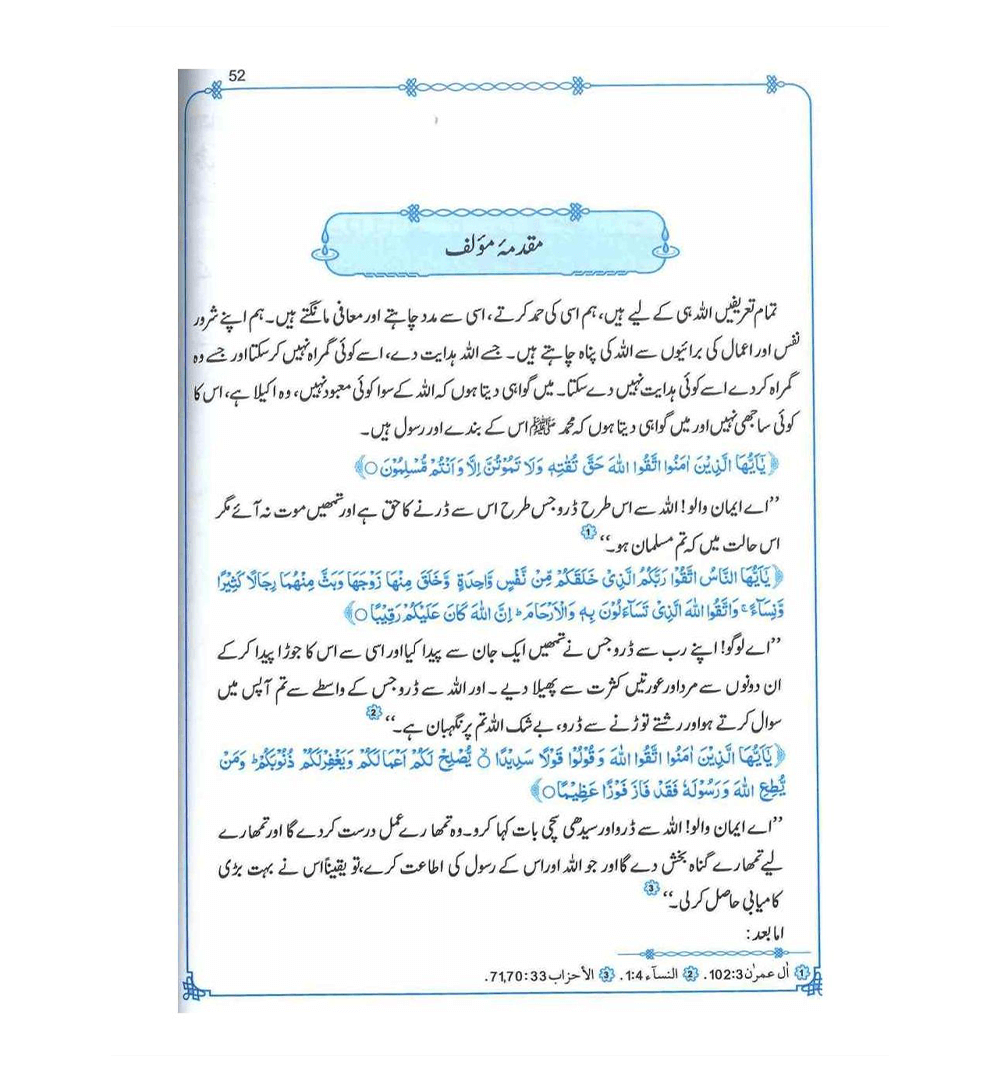 52
مقدمۂ مؤلف
تمام تعریفیں اللہ ہی کے لیے ہیں، ہم اسی کی حمد کرتے، اسی سے مدد چاہتے اور معافی مانگتے ہیں۔ ہم اپنے شرور
نفس اور اعمال کی برائیوں سے اللہ کی پناہ چاہتے ہیں۔ جسے اللہ ہدایت دے، اسے کوئی گمراہ نہیں کر سکتا اور جسے وہ
گمراہ کر دے اسے کوئی ہدایت نہیں دے سکتا۔ میں گواہی دیتا ہوں کہ اللہ کے سوا کوئی معبود نہیں، وہ اکیلا ہے، اس کا
کوئی ساجھی نہیں اور میں گواہی دیتا ہوں کہ محمد ﷺ اس کے بندے اور رسول ہیں۔
﴿يٰۤاَيُّهَا الَّذِيْنَ اٰمَنُوا اتَّقُوا اللّٰهَ حَقَّ تُقٰتِهٖ وَلَا تَمُوْتُنَّ اِلَّا وَاَنْتُمْ مُّسْلِمُوْنَ ○﴾
’’اے ایمان والو! اللہ سے اس طرح ڈرو جس طرح اس سے ڈرنے کا حق ہے اور تمھیں موت نہ آئے مگر
اس حالت میں کہ تم مسلمان ہو۔‘‘ 1
﴿يٰۤاَيُّهَا النَّاسُ اتَّقُوْا رَبَّكُمُ الَّذِيْ خَلَقَكُمْ مِّنْ نَّفْسٍ وَّاحِدَةٍ وَّخَلَقَ مِنْهَا زَوْجَهَا وَبَثَّ مِنْهُمَا رِجَالًا كَثِيْرًا
وَّنِسَآءً ۚ وَاتَّقُوا اللّٰهَ الَّذِيْ تَسَآءَلُوْنَ بِهٖ وَالْاَرْحَامَ ؕ اِنَّ اللّٰهَ كَانَ عَلَيْكُمْ رَقِيْبًا ○﴾
’’اے لوگو! اپنے رب سے ڈرو جس نے تمھیں ایک جان سے پیدا کیا اور اسی سے اس کا جوڑا پیدا کر کے
ان دونوں سے مرد اور عورتیں کثرت سے پھیلا دیے۔ اور اللہ سے ڈرو جس کے واسطے سے تم آپس میں
سوال کرتے ہو اور رشتے توڑنے سے ڈرو، بے شک اللہ تم پر نگہبان ہے۔‘‘ 2
﴿يٰۤاَيُّهَا الَّذِيْنَ اٰمَنُوا اتَّقُوا اللّٰهَ وَقُوْلُوْا قَوْلًا سَدِيْدًا ○ۙ يُّصْلِحْ لَكُمْ اَعْمَالَكُمْ وَيَغْفِرْ لَكُمْ ذُنُوْبَكُمْ ؕ وَمَنْ
يُّطِعِ اللّٰهَ وَرَسُوْلَهٗ فَقَدْ فَازَ فَوْزًا عَظِيْمًا ○﴾
’’اے ایمان والو! اللہ سے ڈرو اور سیدھی سچی بات کہا کرو۔ وہ تمھارے عمل درست کر دے گا اور تمھارے
لیے تمھارے گناہ بخش دے گا اور جو اللہ اور اس کے رسول کی اطاعت کرے، تو یقیناً اس نے بہت بڑی
کامیابی حاصل کر لی۔‘‘ 3
اما بعد:
1 اٰل عمرٰن 102:3. 2 النسآء 1:4. 3 الأحزاب 71,70:33.